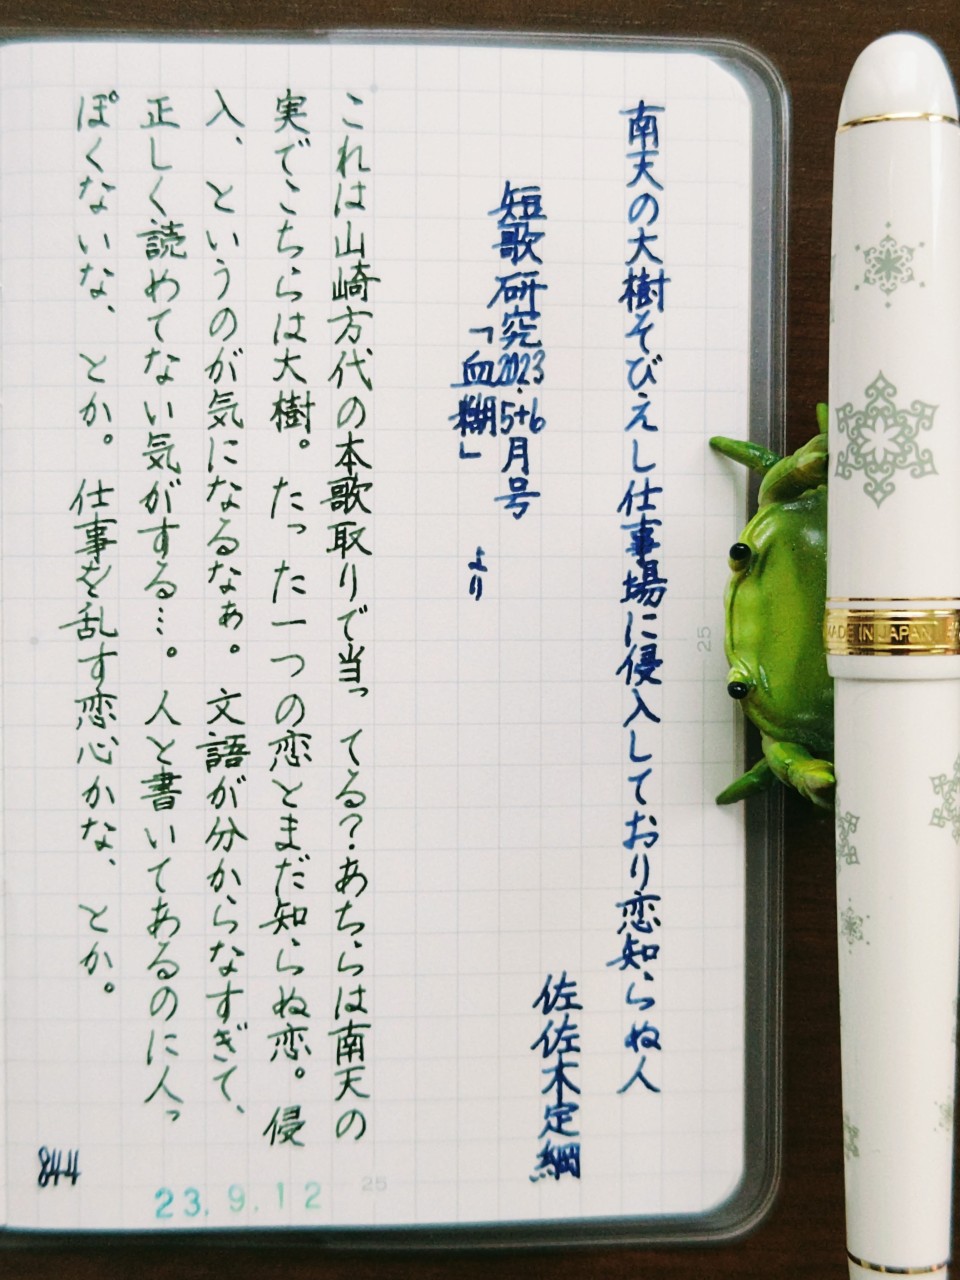 南天の大樹そびえし仕事場に侵入しており恋知らぬ人
佐佐木定綱
短歌研究2023.5+6月号
「血糊」より
これは山崎方代の本歌取りで当ってる?あちらは南天の
実でこちらは大樹。たった一つの恋とまだ知らぬ恋。侵
入、というのが気になるなぁ。文語が分からなすぎて、
正しく読めてない気がする…。人と書いてあるのに人っ
ぽくないな、とか。仕事を乱す恋心かな、とか。
23.9.12
25
25
MADE IN JAPAN